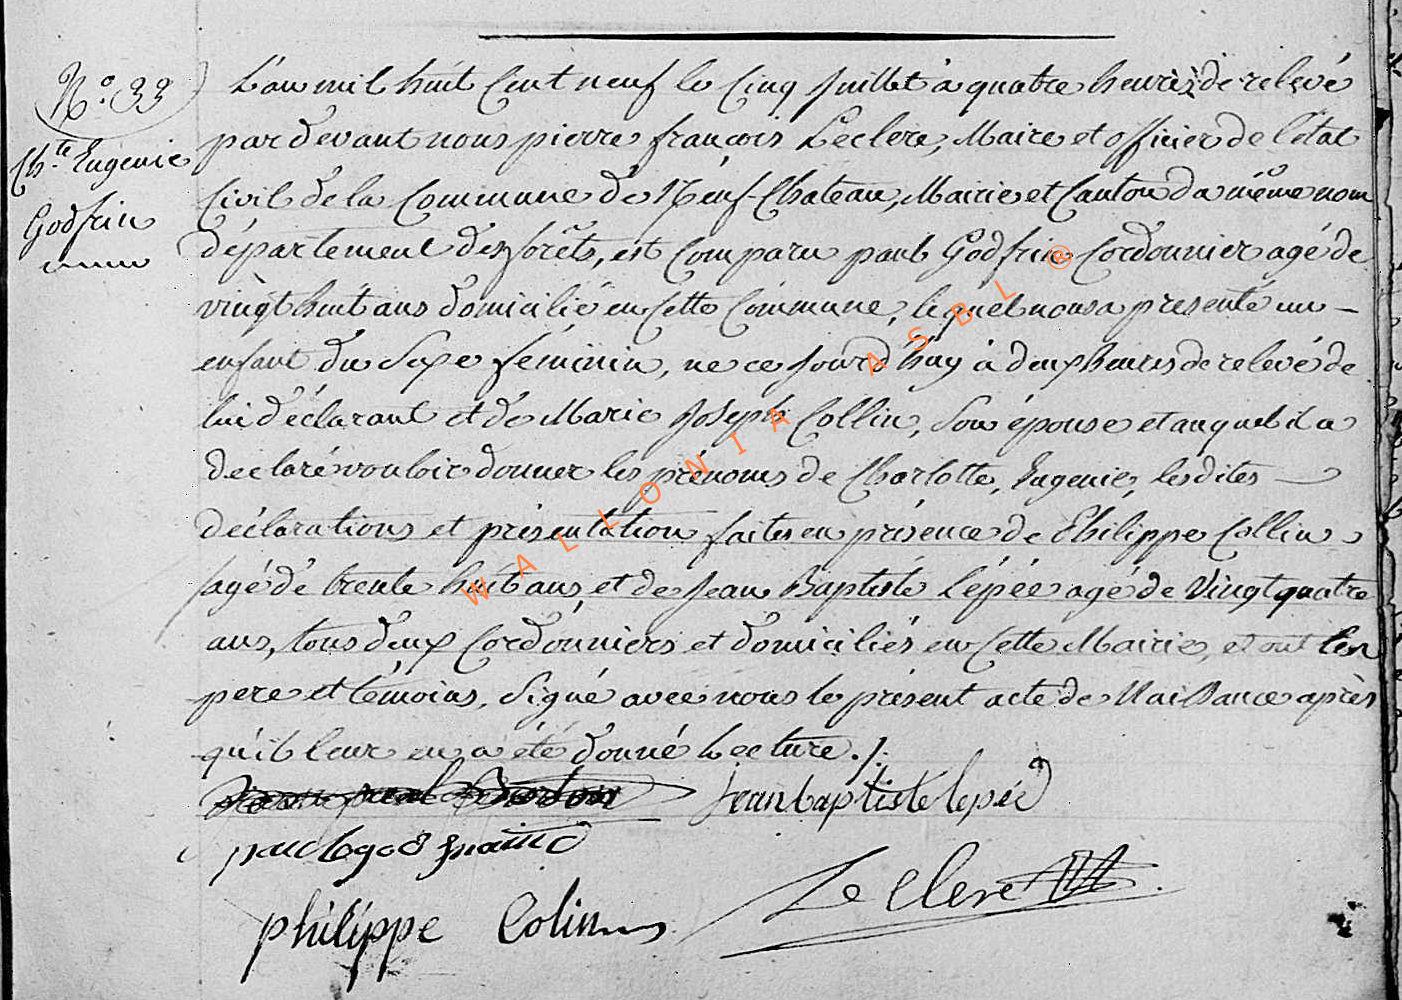 N.º 33
Ch.te Eugenie
Godfrin
L'an mil huit Cent neuf le Cinq Juillet à quatre heures de relevé
pardevant nous pierre françois Leclere, Maire et officier de l'état
Civil de la Commune de Neuf-Chateau, Mairie et Canton du même nom
département des forêts, est Comparu paul Godfrin Cordonnier agé de
vingt huit ans domicilié en Cette Commune, lequel nous a presenté un -
enfant du Sexe féminin, né ce Jourd'huy à deux heures de relevé de
lui déclarant et de Marie Joseph Collin, Son épouse et auquel il a
declaré vouloir donner les prénoms de Charlotte, Eugenie, les dites
déclarations et présentation faites en présence de Philippe Collin
agé de trente huit ans et de Jean Baptiste Lépée agé de Vingt quatre
ans, tous deux Cordonniers et domiciliés en Cette Mairie, et ont les
pere et témoins, Signé avec nous le présent acte de Naissance après
qu'il leur en a été donné Lecture ./.
jean baptiste lepéé
paul god frain
philippe Colin
Le Clere
WALLONIA ASBL ®